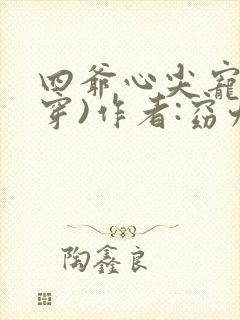 四爺心尖寵
穿)作者:窈
陶鑫良